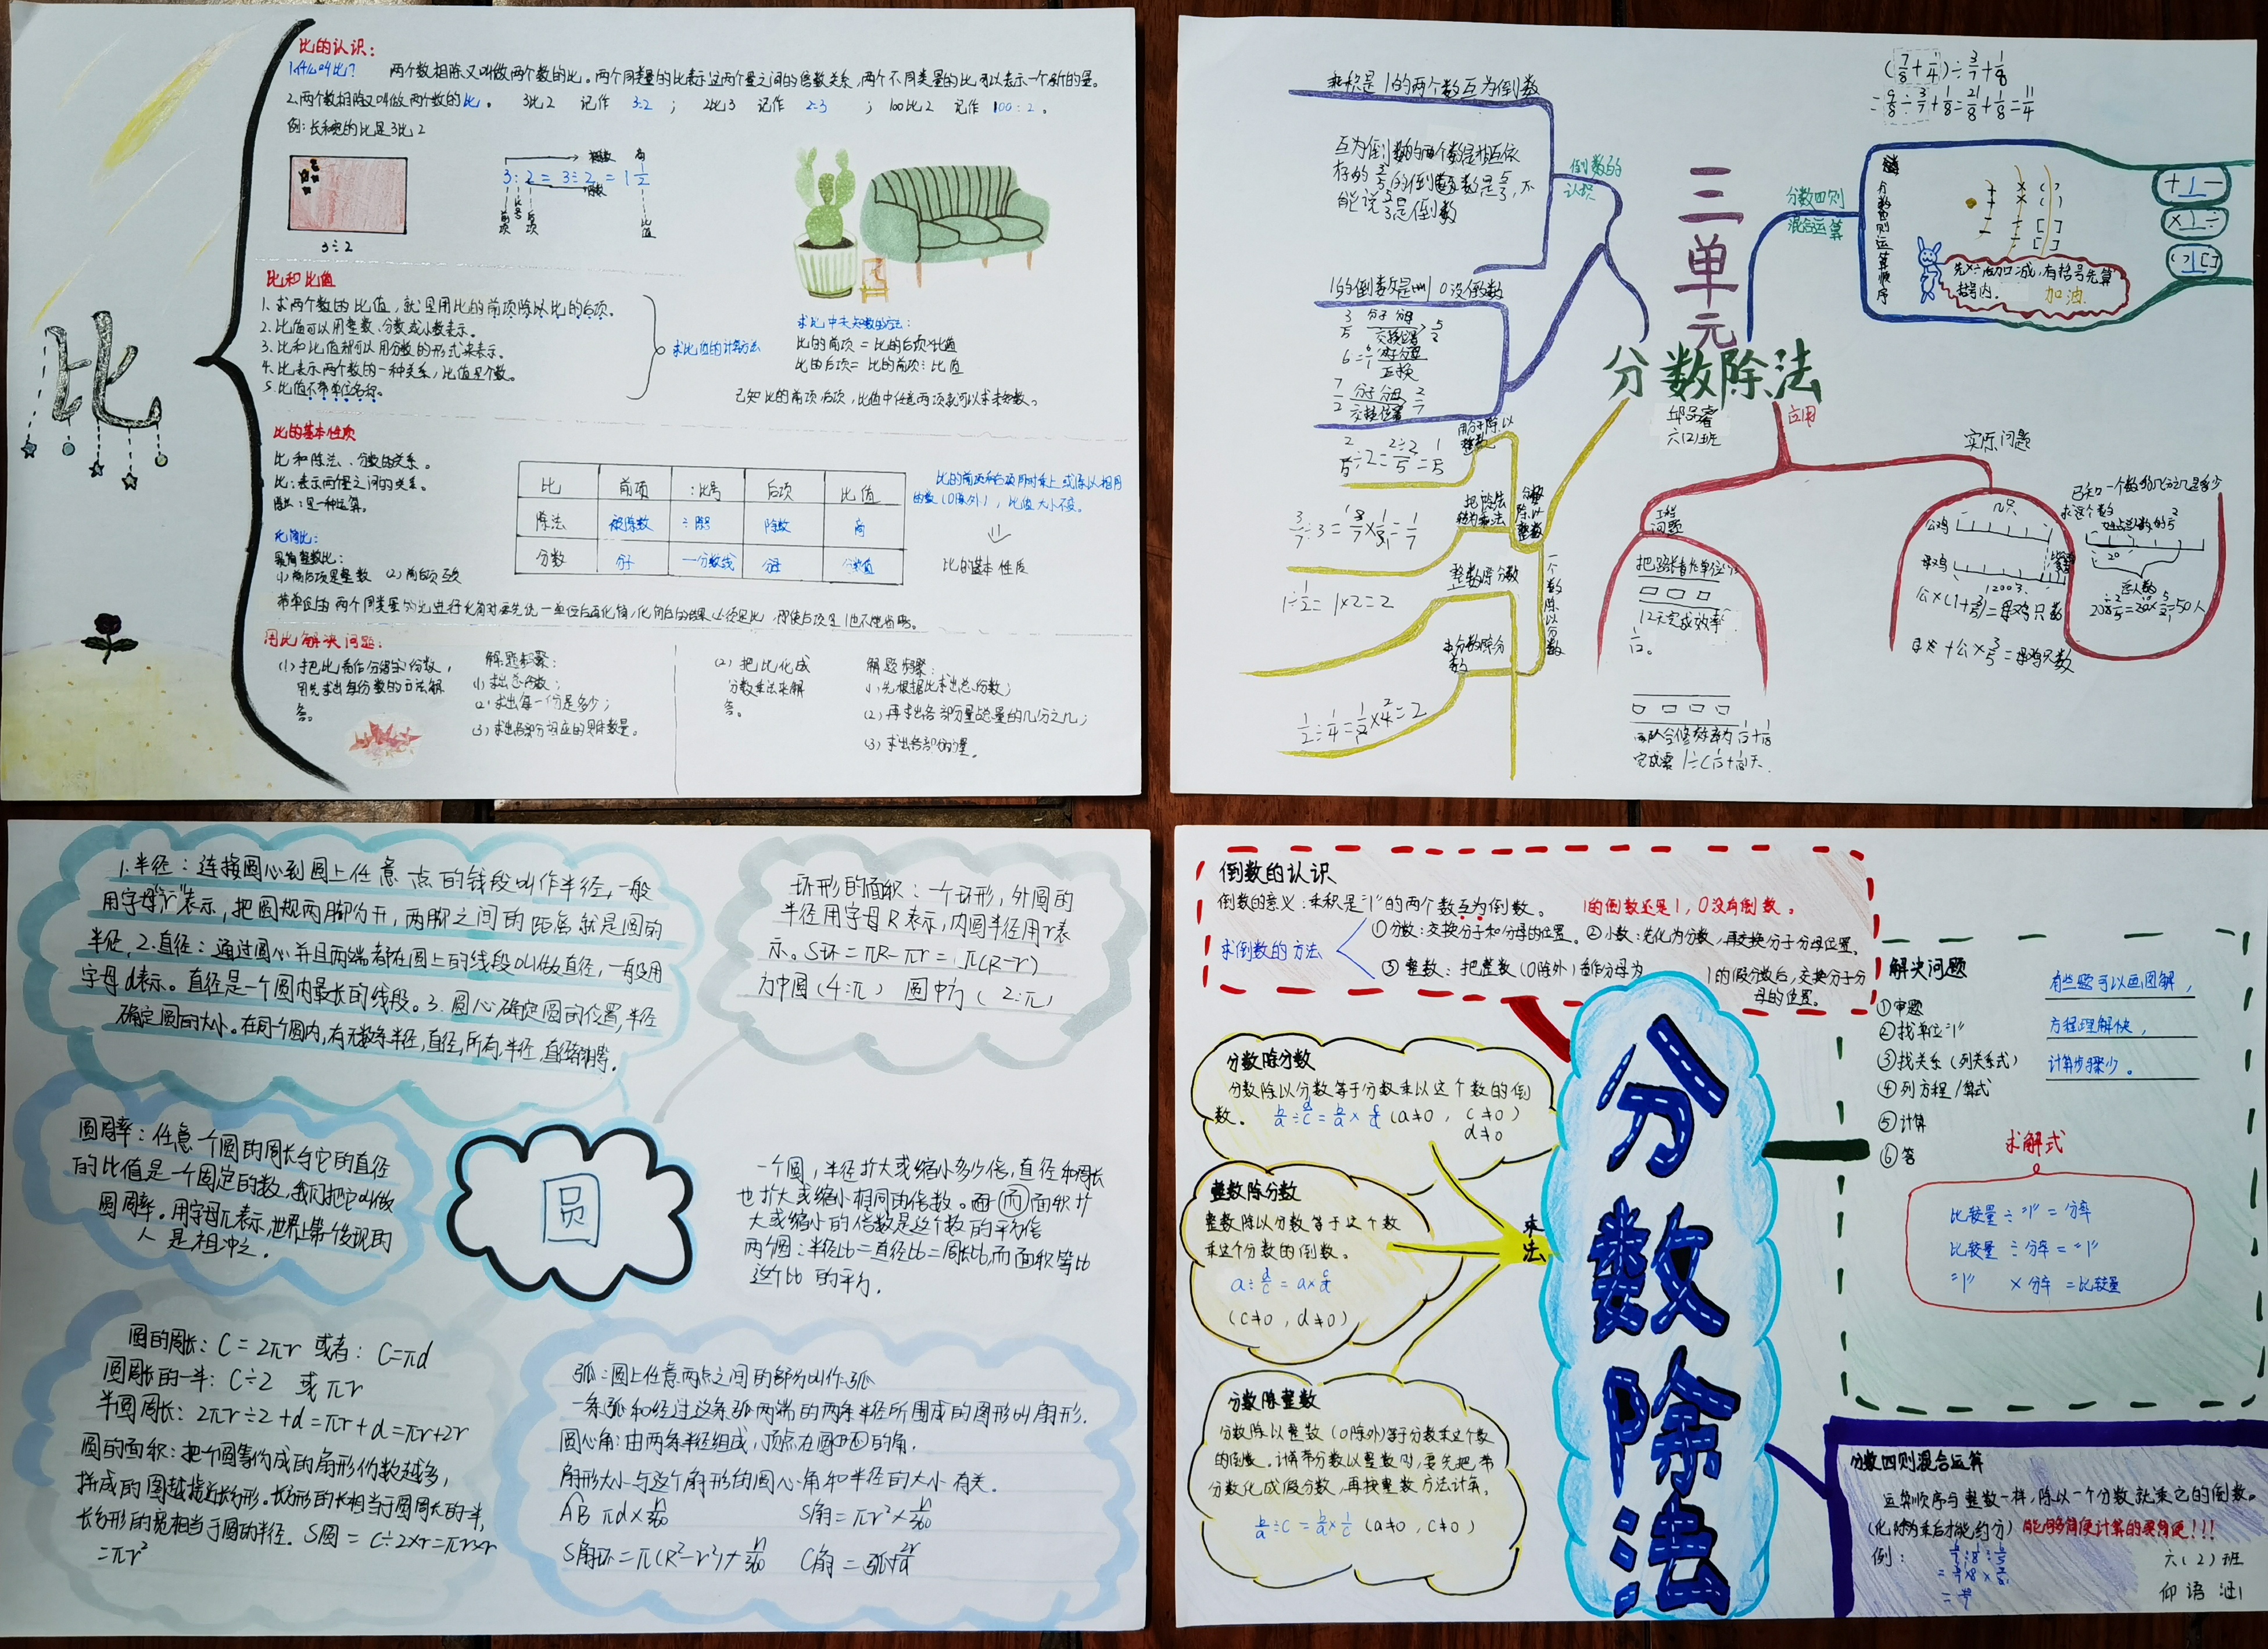 比的认识:
1.什么叫比? 两个数相除又叫做两个数的比。两个同类量的比表示这两个量之间的倍数关系,两个不同类量的比可以表示一个新的量。
2.两个数相除又叫做两个数的比。 3比2 记作 3:2 ; 2比3 记作 2:3 ; 100比2 记作 100:2 。
例:长和宽的比是3比2
3÷2
3:2=3÷2=1 1/2
前项
比号
后项
比值
比
比和比值
1.求两个数的比值,就是用比的前项除以比的后项。
2.比值可以用整数、分数或小数表示。
3.比和比值都可以用分数的形式来表示。
4.比表示两个数的一种关系,比值是个数。
5.比值不带单位名称。
求比值的计算方法
求比中未知数的方法:
比的前项=比的后项×比值
比的后项=比的前项÷比值
已知比的前项后项,比值中任意两项就可以求未知数。
比的基本性项
比和除法、分数的关系。
比:表示两个量之间的关系。
除法:是一种运算。
化简比:
最简整数比:
(1)前后项是整数 (2)前后项互质
比 前项 :比号 后项 比值
除法 被除数 ÷除号 除数 商
分数 分子 一分数线 分母 分数值
比的前项和后项同时乘上或除以相同
的数(0除外),比值大小不变。
比的基本性质
用比解决问题:
(1)把比看作分得的份数,
用先求出每份数的方法解
答。
解题步骤:
(1)求出总份数;
(2)求出每一份是多少;
(3)求出各部分相应的具体数量。
(2)把比化成
分数乘法来解
答。
解题步骤:
(1)先根据比求出总份数;
(2)再求出各部分量占总量的几分之几;
(3)求出各部分的量。
三单元
分数除法
六(2)班
乘积是1的两个数互为倒数
互为倒数的两个数是相互依
存的
能说5/3是倒数
倒数的
认识
3/5 分子 分母 交换位置
7/2 分子 分母 交换位置 2/7
2/5÷2=2÷2/5=1/5
把除法
转为乘法
分数除以整数
整数除分数
1÷1/2=1×2=2
一个数除以分数
分数四则
混合运算
(7/8+1/4)÷3/7+1/8
=9/8÷3/7+1/8=21/8+1/8=11/4
分数四则运算顺序
先×÷后加减,有括号先算
括号内。 加油
应用
工程
问题
12天完成效率
1/12。
实际问题
公鸡
母鸡
已知一个数的几分之几是多少
求这个数
总人数
1.半径:连接圆心到圆上任意一点的钱段叫作半径,一般
用字母“r”表示,把圆规两脚分开,两脚之间的距离就是圆的
半径,2.直径:通过圆心并且两端都在圆上的线段叫做直径,一般用
字母d表示。直径是一个圆内最长的线段。3.圆心确定圆的位置,半径
确定圆的大小。在同一个圆内,有无数条半径,直径,所有半径,直径都相等。
环形的面积:一个环形,外圆的
半径用字母R表示,内圆半径用r表
示。S环=πR-πr=π(R-r)
方中圆(4:π) 圆中方(2:π)
圆周率:任意一个圆的周长与它的直径
的比值是一个固定的数,我们把它叫做
圆周率。用字母π表示,世界上第一个发现的
人是祖冲之。
圆
一个圆,半径扩大或缩小多少倍,直径和周长
也扩大或缩小相同的倍数。而面积扩
大或缩小的倍数是这个数的平方倍
两个圆:半径比=直径比=周长比,而面积等比
这个比的平方.
圆的周长:C=2πr 或者:C=πd
圆周长的一半:C÷2 或πr
半圆周长:2πr÷2+d=πr+d=πr+2r
圆的面积:把一个圆等份成的扇形份数越多,
拼成的图越接近长方形。长方形的长相当于圆周长的一半,
长方形的宽相当于圆的半径. S圆=C÷2×r=πr×r
=πr²
弧:圆上任意两点之间的部分叫作弧
一条弧和经过这条弧两端的两条半径所围成的图形叫扇形.
圆心角:由两条半径组成,顶点在圆心的角.
扇形大小与这个扇形的圆心角和半径的大小有关.
AB πd×n/360 S扇=πr²×n/360
S扇环=π(R²-r²)×n/360
倒数的认识
倒数的意义:乘积是“1”的两个数互为倒数。 1的倒数还是1,0没有倒数。
求倒数的方法
①分数:交换分子和分母的位置。②小数:先化为分数,再交换分子分母位置。
③整数:把整数(0除外)看作分母为 1的假分数后,交换分子分
母的位置。
分数除法
分数除分数
分数除以分数等于分数乘以这个数的倒
数。 b/a÷d/c=b/a×c/d (a≠0, c≠0)
d≠0
整数除分数
整数除以分数等于这个数
乘这个分数的倒数。
a÷d/c=a×c/d
(c≠0, d≠0)
分数除整数
分数除以整数(0除外)等于分数乘这个数
的倒数。计算带分数以整数时,要先把带
分数化成假分数,再按整数方法计算。
b/a÷c=b/a×1/c (a≠0, c≠0)
乘法
解决问题
①审题
②找单位“1”
③找关系(列关系式)
④列方程/算式
⑤计算
⑥答
有些题可以画图解,
方程理解快,
计算步骤少。
求解式
比较量÷“1”=分率
比较量÷分率=“1”
“1”×分率=比较量
分数四则混合运算
运算顺序与整数一样,除以一个分数就乘它的倒数。
(化除为乘后才能约分)能够简便计算的要简便!!!
例:
六(2)班